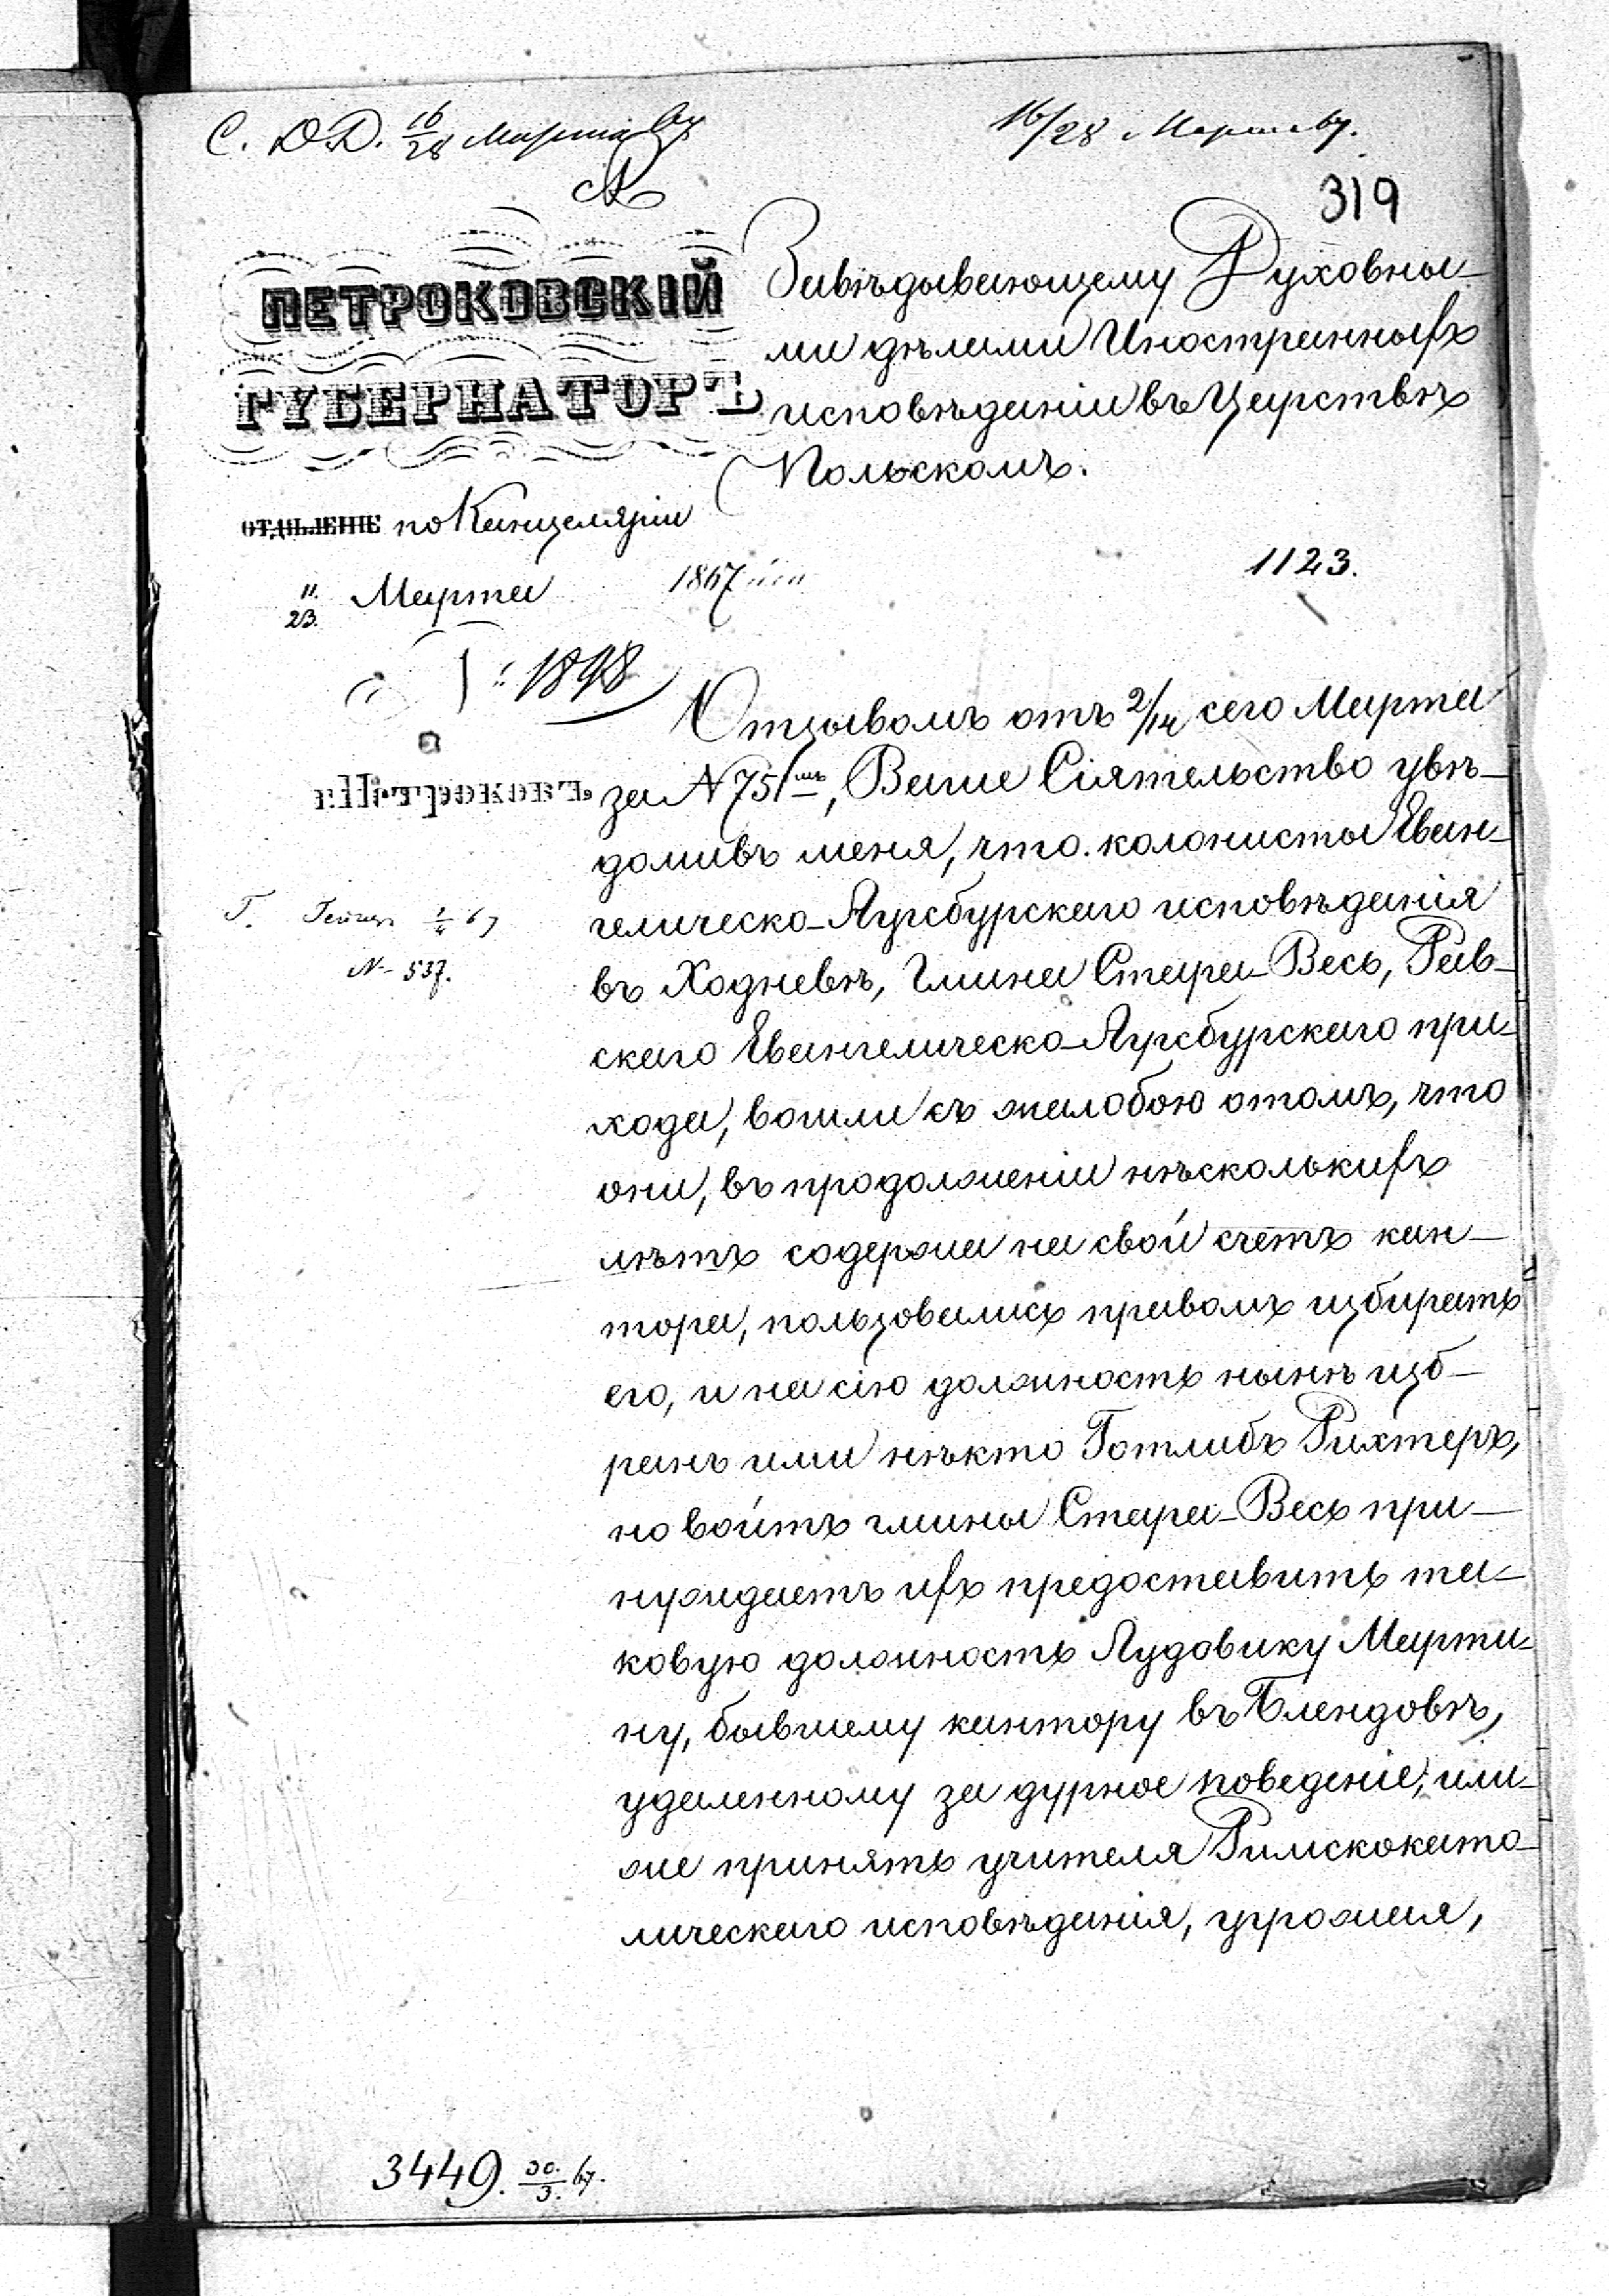 С. Д. Д. 16/28 Марта 67
16/28 Марта 67.
319
ПЕТРОКОВСКІЙ
ГУБЕРНАТОРЪ
ОТДѢЛЕНІЕ по Канцеляріи
11/23. Марта 1867
1898
Г. ПЕТРОКОВЪ
Г. 67
N 537.
Завѣдывающему Духовны-
ми дѣлами Иностранныхъ
исповѣданіи въ Царствѣ
Польскомъ.
1123.
Отзывомъ отъ 2/14 сего Марта
за N 751мъ, Ваше Сіятельство увѣ-
домивъ меня, что колонисты Еван-
гелическо-Аугсбургскаго исповѣданія
въ Ходневѣ, Гмина Стара-Весь, Рав-
скаго Евангелическо-Аугсбургскаго при-
хода, вошли съ жалобою о томъ, что
они, въ продолженіи нѣсколькихъ
лѣтъ содержа на свой счетъ кан-
тора, пользовались правомъ избирать
его, и на сію должность нынѣ изб-
ранъ ими нѣкто Готлибъ Рихтеръ,
но войтъ гмины Стара-Весь при-
нуждаетъ ихъ предоставить та-
ковую должность Лудовику Марти-
ну, бывшему кантору въ Блендовѣ,
удаленному за дурное поведеніе, или-
же принять учителя Римскокато-
лическаго исповѣданія, угрожая,
3449. 30/3. 67.